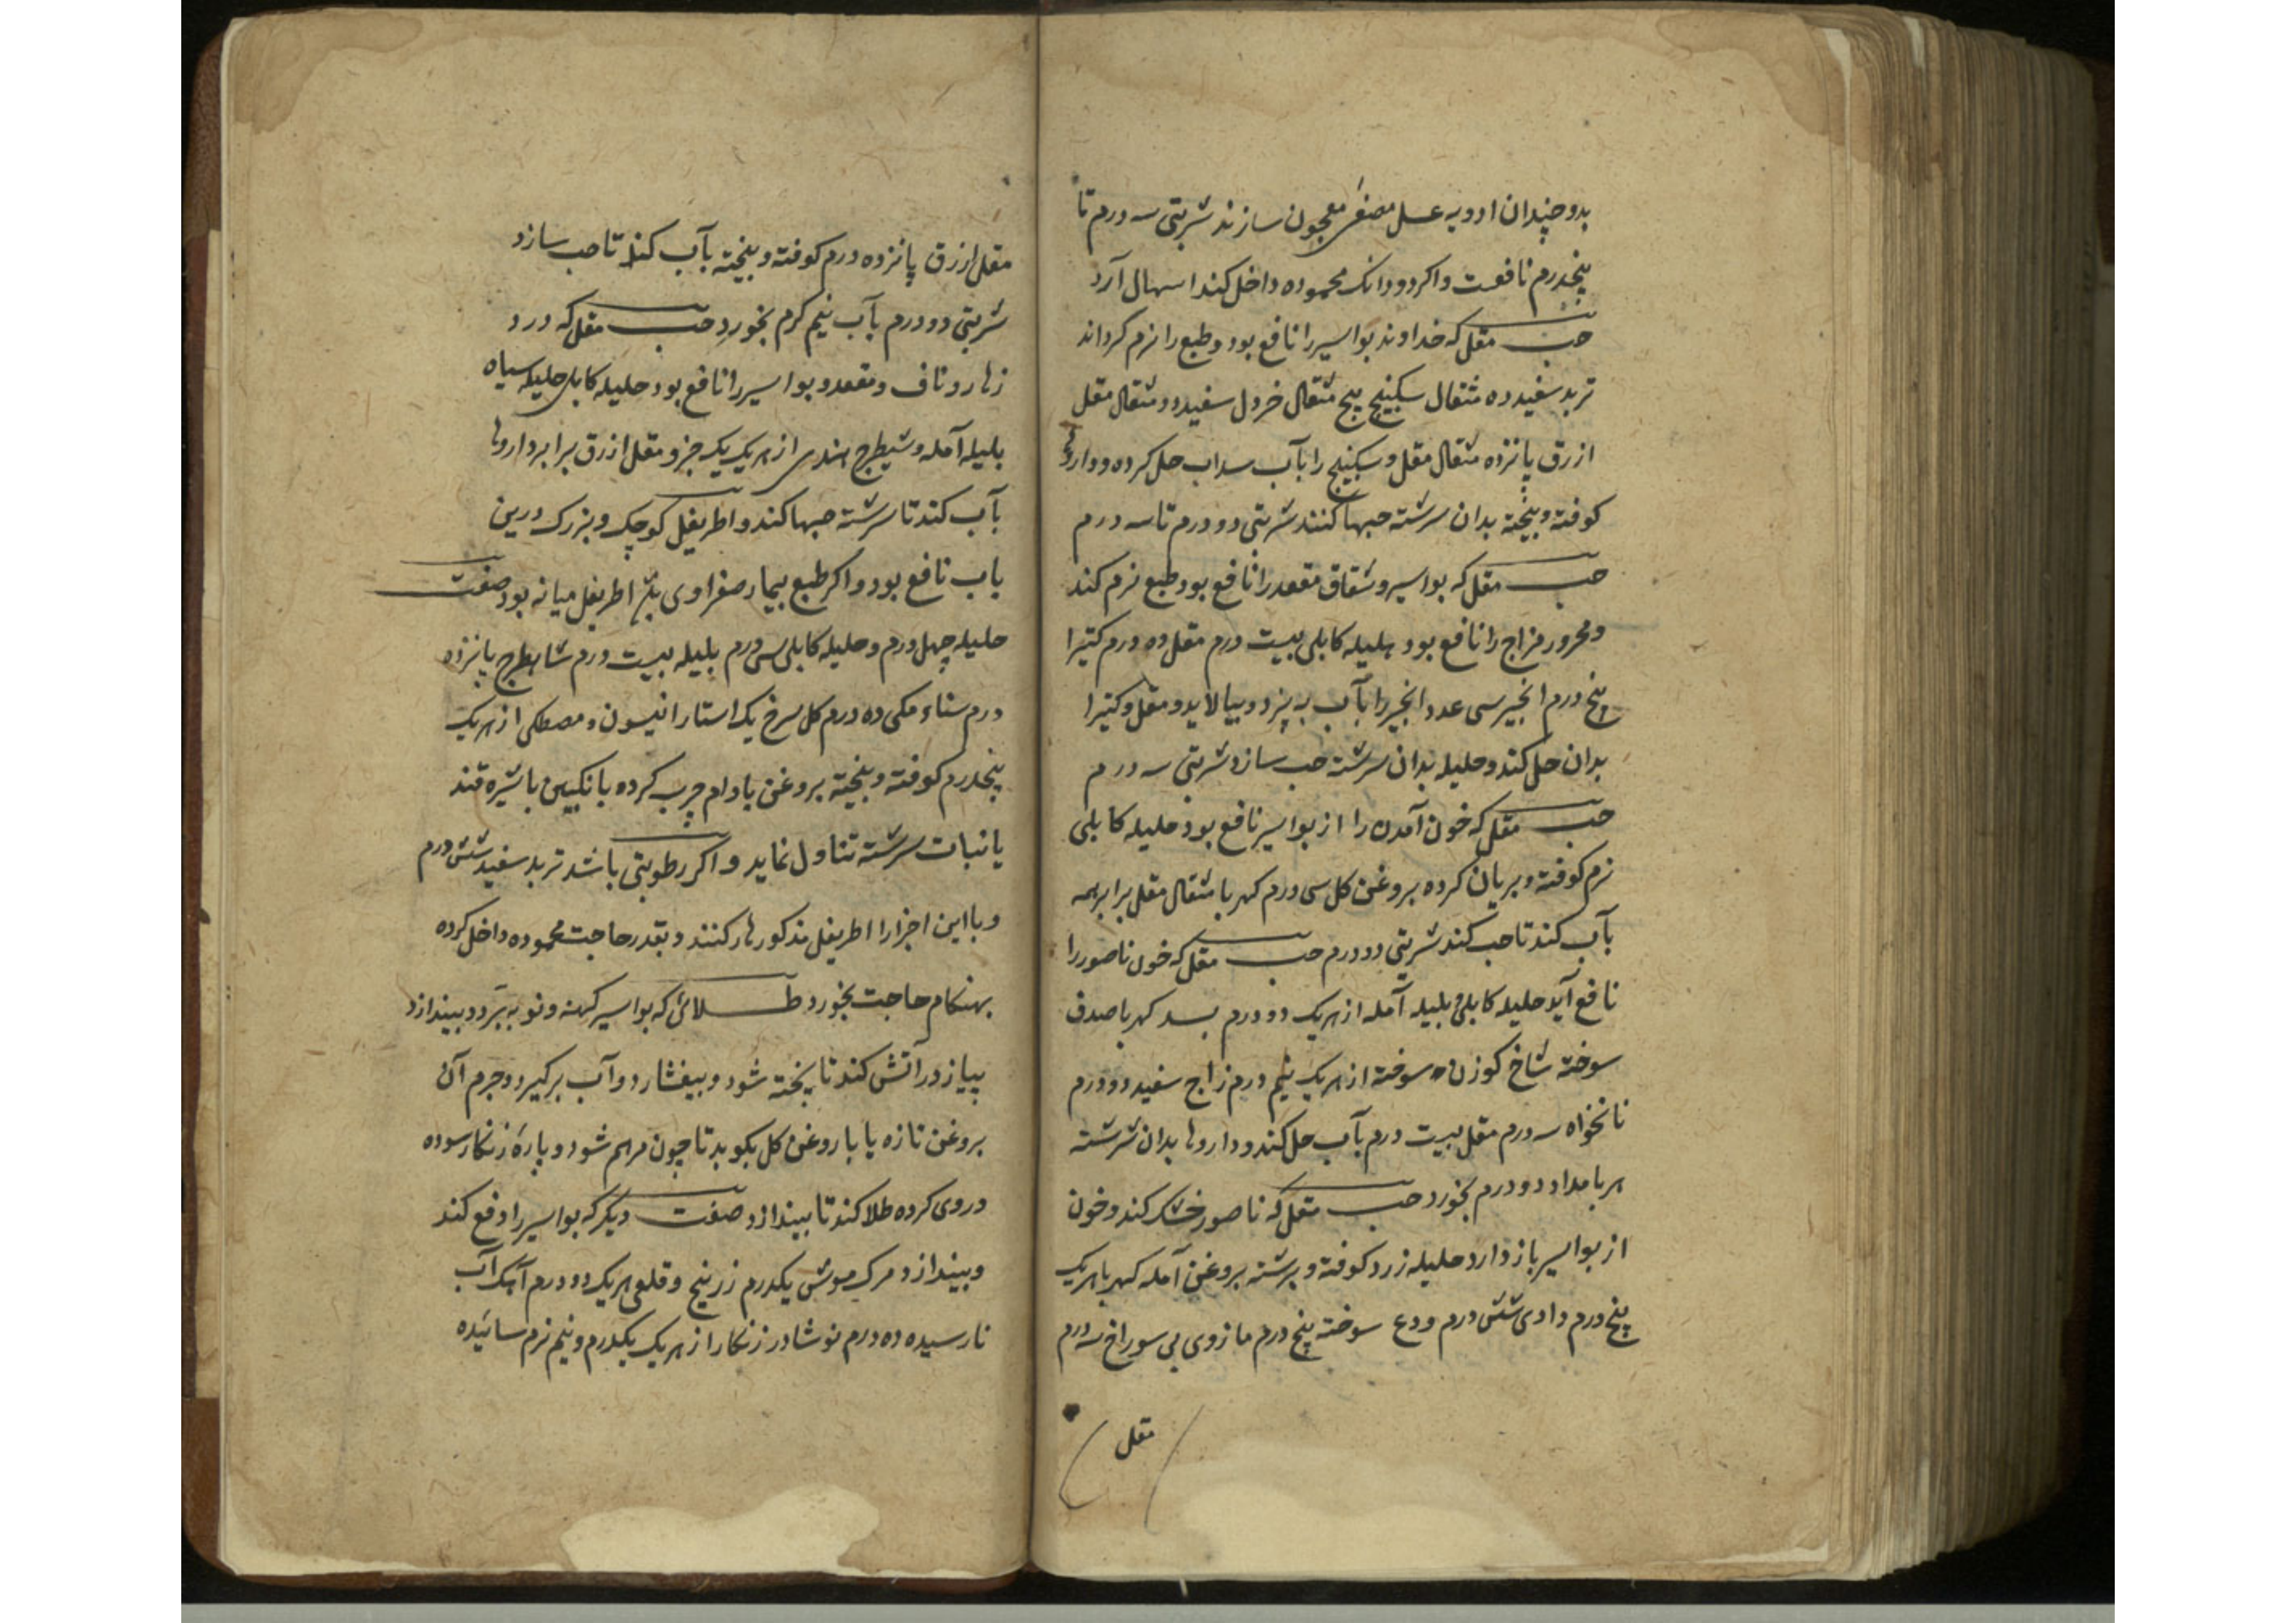 بدو چندان ادویه عسل مصفی معجون سازند شربتی سه درم تا
پنجدرم نافعست واکر دو دانک محموده داخل کند اسهال آرد
حب مقل که خداوند بواسیر را نافع بود و طبع را نرم کرداند
تربد سفید ده مثقال سکبینج پنج مثقال خردل سفید دو مثقال مقل
ازرق پانزده مثقال مقل و سکبینج را بآب سداب حل کرده و داروها
کوفته و بیخته بدان سرشته حبها کنند شربتی دو درم تا سه درم
حب مقل که بواسیر و شقاق مقعد را نافع بود طبع نرم کند
و محرور مزاج را نافع بود هلیله کابلی بیست درم مقل ده درم کتیرا
پنج درم انجیر سی عدد انجیر را بآب به پزد و بیالاید و مقل و کتیرا
بدان حل کند و حلیله بدان سرشته حب سازد شربتی سه درم
حب مقل که خون آمدن را از بواسیر نافع بود حلیله کابلی
نرم کوفته و بریان کرده بروغن کل سی درم کهربا مثقال مقل برابر همه
بآب کند تا حب کند شربتی دو درم حب مقل که خون ناصور را
نافع آید حلیله کابلی بلیله آمله از هریک دو درم بسد کهربا صدف
سوخته شاخ کوزن سوخته از هریک نیم درم زاج سفید دو درم
نانخواه سه درم مقل بیست درم بآب حل کند و داروها بدان سرشته
هر بامداد دو درم بخورد حب مقل که ناصور خشک کند و خون
از بواسیر باز دارد حلیله زرد کوفته و برشته بروغن آمله کهربا هریک
پنج درم دادی شش درم ودع سوخته پنج درم مازوی بی سوراخ سه درم
مقل
مقل ازرق پانزده درم کوفته و بیخته بآب کندنا حب سازد
شربتی دو درم بآب نیم کرم بخورد حب مقل که درد
زهار و ناف و مقعد و بواسیر را نافع بود حلیله کابلی حلیله سیاه
بلیله آمله و شیطرج هندی از هریک یک جزو مقل ازرق برابر داروها
بآب کندنا سرشته حبها کند و اطریفل کوچک و بزرک درین
باب نافع بود و اکر طبع بیمار صفراوی اطریفل میانه بود صفت
حلیله چهل درم و حلیله کابلی سی درم بلیله بیست درم شاهطرج پانزده
درم سناء مکی ده درم کل سرخ یک استار انیسون و مصطکی از هریک
پنجدرم کوفته و بیخته بروغن بادام چرب کرده بانکبین یا شیره قند
یا نبات سرشته تناول نماید و اکر رطوبتی باشد تربد سفید شش درم
و با این اجزا را اطریفل مذکور بار کنند و بقدر حاجت محموده داخل کرده
بهنکام حاجت بخورد طلائی که بواسیر کهنه و نو به برد و بیندازد
پیاز در آتش کند تا پخته شود و بیفشارد و آب برکیرد و جرم آن
بروغن تازه یا با روغن کل بکوبد تا چون مرهم شود و پاره زنکار سوده
دروی کرده طلا کند تا بیندازد صفت دیکر که بواسیر را دفع کند
و بیندازد مرک موش یکدرم زرنیخ و قلعی هریک دو درم آهک آب
نارسیده ده درم نوشادر زنکار از هریک یکدرم و نیم نرم سائیده